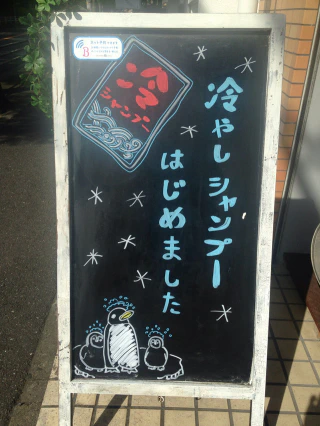 冷やしシャンプー
はじめました
冷
シャンプー
B